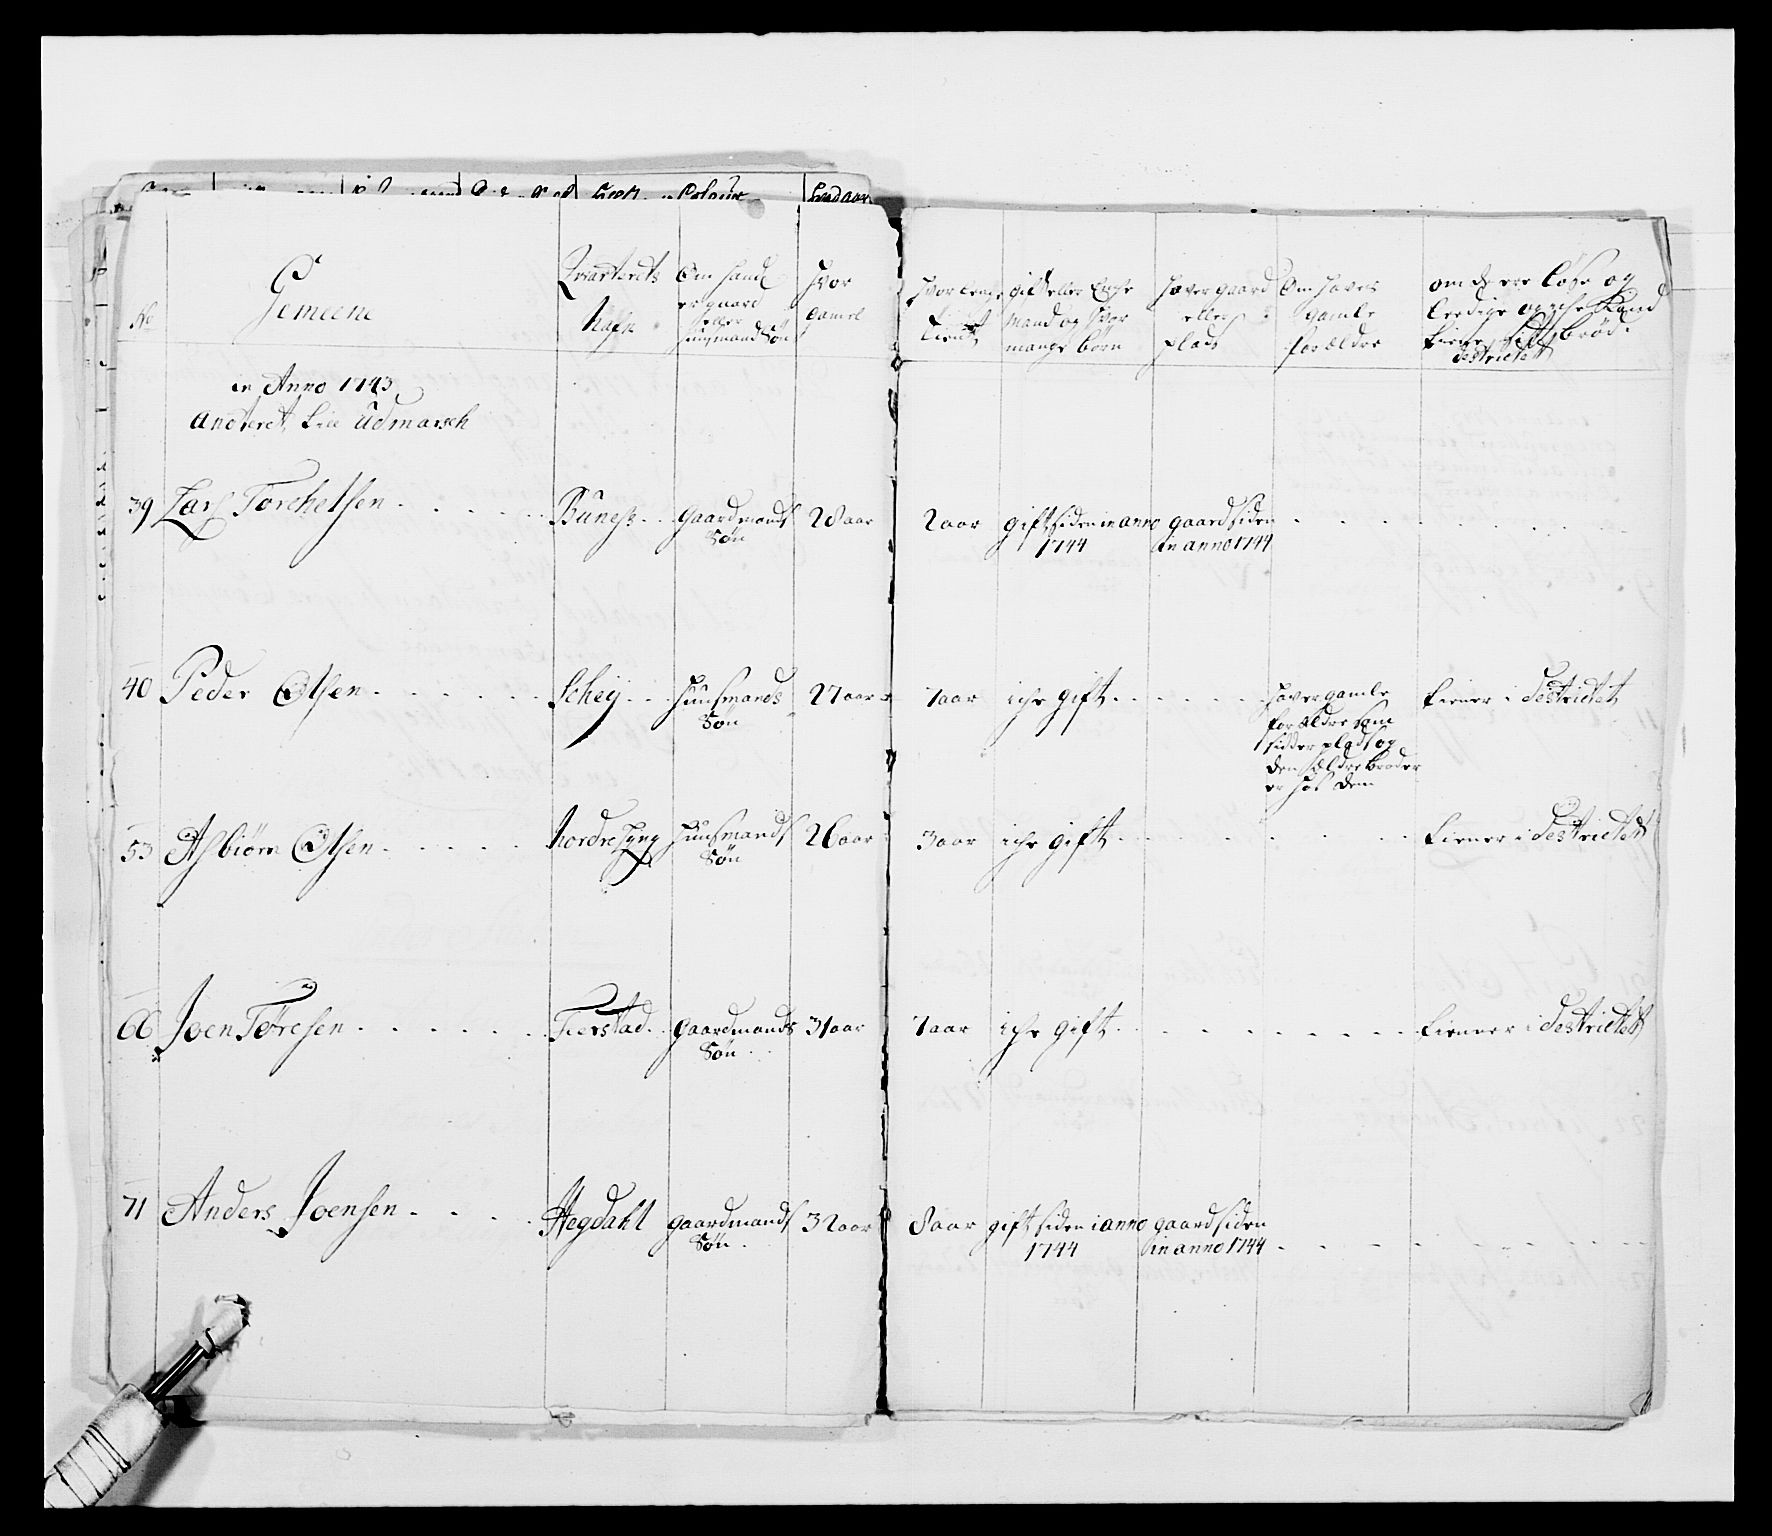 No
Gemeene
Qvarterets Nafn
Om hand er gaard eller huusmands Søn
Hvor gamel
Hvor lenge tient
gift eller Enche Mand og hvor mange børn
Hafver gaard eller plads
Om hafver gamle forældre
om de ere løse og leedige
tiene districtet
in Anno 1743
anderet till Udmarsch
39 Lars Torchelsen Buness gaardmands Søn 28 aar 2 aar gift siden in anno 1744 gaard siden in anno 1744
40 Peder Olsen Schey huusmands Søn 27 aar 7 aar iche gift hafver gamle forældre som sidder plads og den ældre broder er hos dem tiener i destrictet
53 Asbiørn Olsen Nordre Lyng huusmands Søn 26 aar 3 aar iche gift tiener i destrictet
66 Joen Toresen Fierstad gaardmands Søn 31 aar 7 aar iche gift tienner i destrictet
71 Anders Joensen Hegdahl gaardmands Søn 32 aar 8 aar gift siden i anno 1744 gaard siden in anno 1744